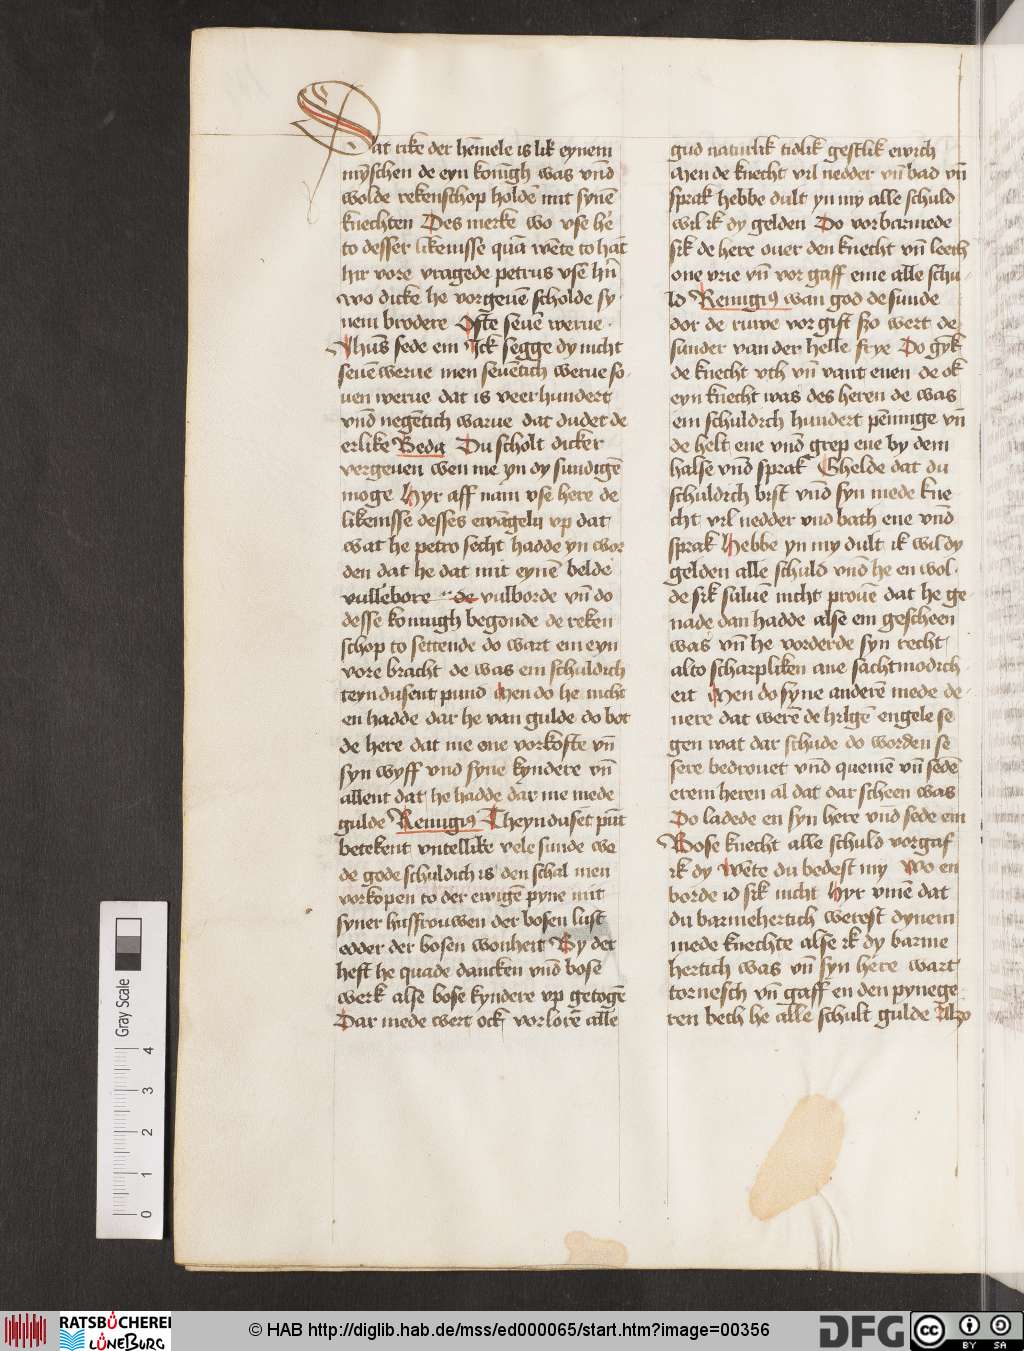 Dat rike der hēmele is lik eynem
mȳschen de eyn konīgh was vnd
wolde rekenschop holdē mit synē
knechten Des merke wo vse hē
to desser likenisse quā wēte to hāt
hir vore vragede petrus vsē hn̄
wo dicke he vorgeuē scholde sy
nem brodere Ofte seuē werue
Jhūs sede em Ick segge dy nicht
seuē werue men seuētich werue so
uen werue dat is veerhundert
vnd negētich warue dat dudet de
erlike Beda Du scholt dicker
vergeuen wen me yn dy sundigē
moge Hyr aff nam vse here de
likenisse desses ewāgelij vp dat
wat he petro secht hadde yn wor
den dat he dat mit eynē belde
vullēbore de vulborde vn̄ do
desse konnigh begonde de reken
schop to settende do wart em eyn
vore bracht de was em schuldich
teyn dusent pund Men do he nicht
en hadde dar he van gulde do bot
de here dat me one vorkofte vn̄
syn wyff vnd syne kyndere vn̄
allent dat he hadde dar me mede
gulde Remigi9 Theyn dusēt pūt
betekent vntellike vele sunde we
de gode schuldich is den schal men
vorkopen to der ewigē pyne mit
syner husfrouwen der bosen lust
edder der bosen wonheit By det
heft he quade dancken vnd bose
werk alse bose kyndere vp getogē
Dar mede wert ock vorlorē alle
gud naturlik tidlik gestlik ewich
Men de knecht vil nedder vn̄ bad vn̄
sprak hebbe dult yn my alle schuld
wil ik dy gelden Do vorbarmede
sik de here ouer den knecht vn̄ leeth
one vrie vn̄ vor gaff eme alle schu
ld Remigi9 wan god de sunde
dor de ruwe vor gift szo wert de
sunder van der helle frye Do gyk
de knecht vth vn̄ vant enen de ok
eyn knecht was des heren de was
em schuldich hundert pēnnige vn̄
de helt ene vnd grep ene by dem
halse vnd sprak Ghelde dat du
schuldich bist vnd syn mede kne
cht vil nedder vnd bath ene vnd
sprak Hebbe yn my dult ik wil dy
gelden alle schuld vnd he en wol
de sik suluē nicht prouē dat he ge
nade dan hadde alse em gescheen
was vn̄ he vorderde syn recht
alto scharpliken ane sachtmodich
eit Men do syne anderē mede de
nere dat werē de hilgē engele se
gen wat dar schude do worden se
sere bedrouet vnd quemē vn̄ sedē
erem heren al dat dar scheen was
Do ladede en syn here vnd sede em
Bose knecht alle schuld vorgaf
ik dy wēte du bedest my Wo en
borde id sik nicht Hyr vmē dat
du barmehertich werest dynem
mede knechte alse ik dy barme
hertich was vn̄ syn hēre wart
tornesch vn̄ gaff en den pynege
ren beth he alle schult gulde Alzo
Gray Scale
4
3
2
1
0
RATSBÜCHEREI
LÜNEBURG
© HAB http://diglib.hab.de/mss/ed000065/start.htm?image=00356
DFG
cc
BY SA